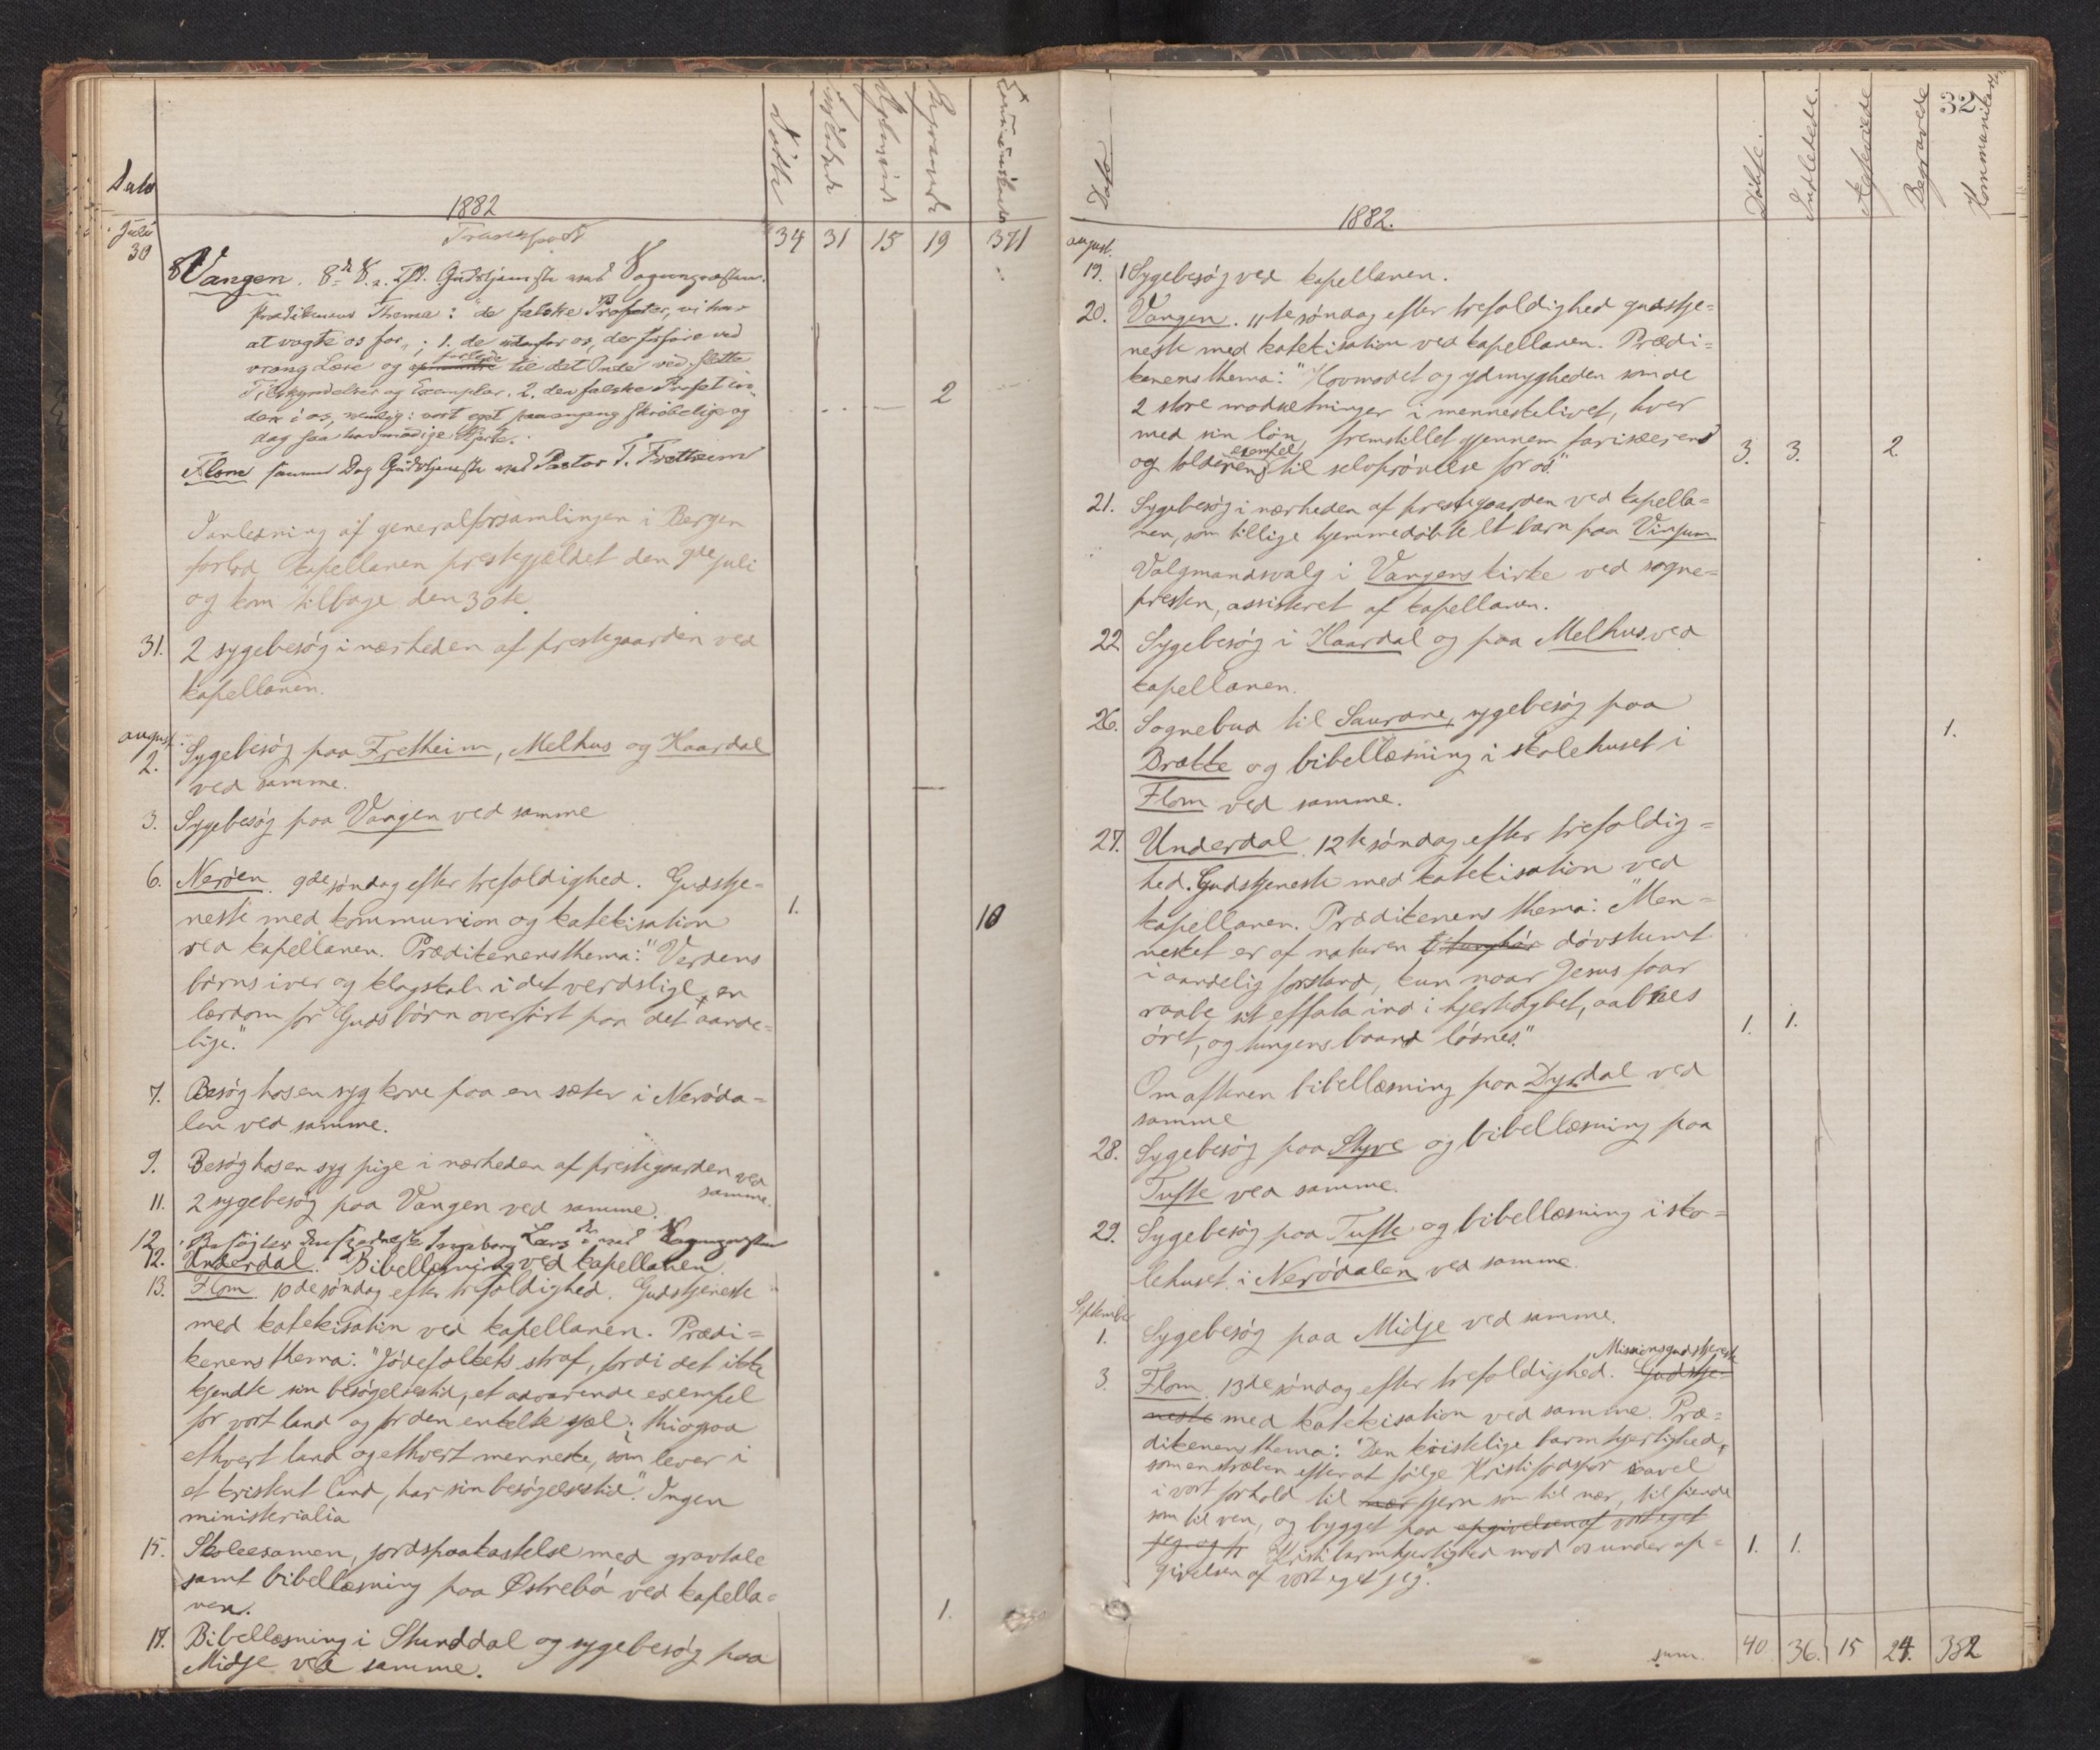 Dato
Døbte
Begravede
1882
Transport
34 31 15 19 371
Juli
30
Vangen. 8de S. e. Tr. Gudstjeneste ved Sognepræsten.
Prædikenens Thema: "de falske Profeter, vi har
at vogte os for"; 1. de udenfor os, der forføre ved
vrang Lære og forlede til det Onde ved slette
Tilskyndelser og Exempler. 2. den falske Profet in-
den i os, nemlig: vort eget skrøbelige og
dog saa hovmodige Hjerte.
2
Flom samme Dag Gudstjeneste ved Pastor T. Fretheim
I anledning af generalforsamlingen i Bergen
forlod kapellanen prestegjældet den 9de juli
og kom tilbage den 30te.
31. 2 sygebesøg i nærheden af prestegaarden ved
kapellanen.
august
2. Sygebesøg paa Fretheim, Melhus og Haardal
ved samme.
3. Sygebesøg paa Vangen ved samme
6. Nerøen. 9de søndag efter trefoldighed. Gudstje-
neste med kommunion og katekisation 1. 10
ved kapellanen. Prædikenens thema: "Verdens
børns iver og klogskab i det verdslige, en
lærdom for Guds børn overført paa det aande-
lige."
7. Besøg hos en syg kone paa en sæter i Nerøda-
len ved samme.
9. Besøg hos en syg pige i nærheden af prestegaarden ved
samme.
11. 2 sygebesøg paa Vangen ved samme.
12. Besøg hos Ingeborg Lars ved Sognepræsten
12. Underdal. Bibellæsning ved kapellanen
13. Flom. 10de søndag efter trefoldighed. Gudstjeneste
med katekisation ved kapellanen. Prædi-
kenens thema: "Jødefolkets straf, fordi det ikke
kjendte sin besøgelsestid, et advarende exempel
for vort land og for den enkelte sjæl; thi ogsaa
ethvert land og ethvert menneske, som lever i
et kristent land, har sin besøgelsestid." Ingen
ministerialia
15. Skoleexamen, jordspaakastelse med gravtale
samt bibellæsning paa Østrebø ved kapella-
nen. 1.
17. Bibellæsning i Stunddal og sygebesøg paa
Midje ved samme.
32
Dato
Døbte.
Indledede.
Ægteviede
Begravede
Kommunikanter
1882.
august.
19. 1 Sygebesøg ved kapellanen.
20. Vangen. 11te søndag efter trefoldighed gudstje-
neste med katekisation ved kapellanen. Prædi-
kenens thema: "Hovmodet og ydmygheden som de
2 store modsætninger i menneskelivet, hver
med sin løn, fremstillet gjennem farisæerens
og tolderens exempel til selvprøvelse for os." 3. 3. 2.
21. Sygebesøg i nærheden af prestegaarden ved kapella-
nen, som tillige hjemmedøbte et barn paa Vinjum
Valgmandsvalg i Vangens kirke ved sogne-
presten, assisteret af kapellanen.
22 Sygebesøg i Haardal og paa Melhus ved
kapellanen.
26. Sognebud til Saurane, sygebesøg paa 1.
Brække og bibellæsning i skolehuset i
Flom ved samme.
27. Underdal. 12te søndag efter trefoldig-
hed. Gudstjeneste med katekisation ved
kapellanen. Prædikenens thema: "Men-
nesket er af naturen døvstumt
i aandelig forstand, kun naar Jesus faar
raabe sit effata ind i hjertedybet, aabnes
øret, og tungens baand løsnes." 1. 1.
Om aftenen bibellæsning paa Dyrdal ved
samme
28. Sygebesøg paa Styve og bibellæsning paa
Tufte ved samme.
29. Sygebesøg paa Tufte og bibellæsning i sko-
lehuset i Nerødalen ved samme.
September
1. Sygebesøg paa Midje ved samme.
Missionsgudstjeneste
3. Flom. 13de søndag efter trefoldighed. Gudstje-
neste med katekisation ved samme. Præ-
dikenens thema: "Den kristelige barmhjertighed,
som en stræben efter at følge Kristi fodspor saavel
i vort forhold til nær fjern som til nær, til fiende
som til ven, og bygget paa opgivelsen af vort eget
jeg og Kristi barmhjertighed mod os under op-
givelsen af vort eget jeg". 1. 1.
sum. 40 36. 15 24. 382